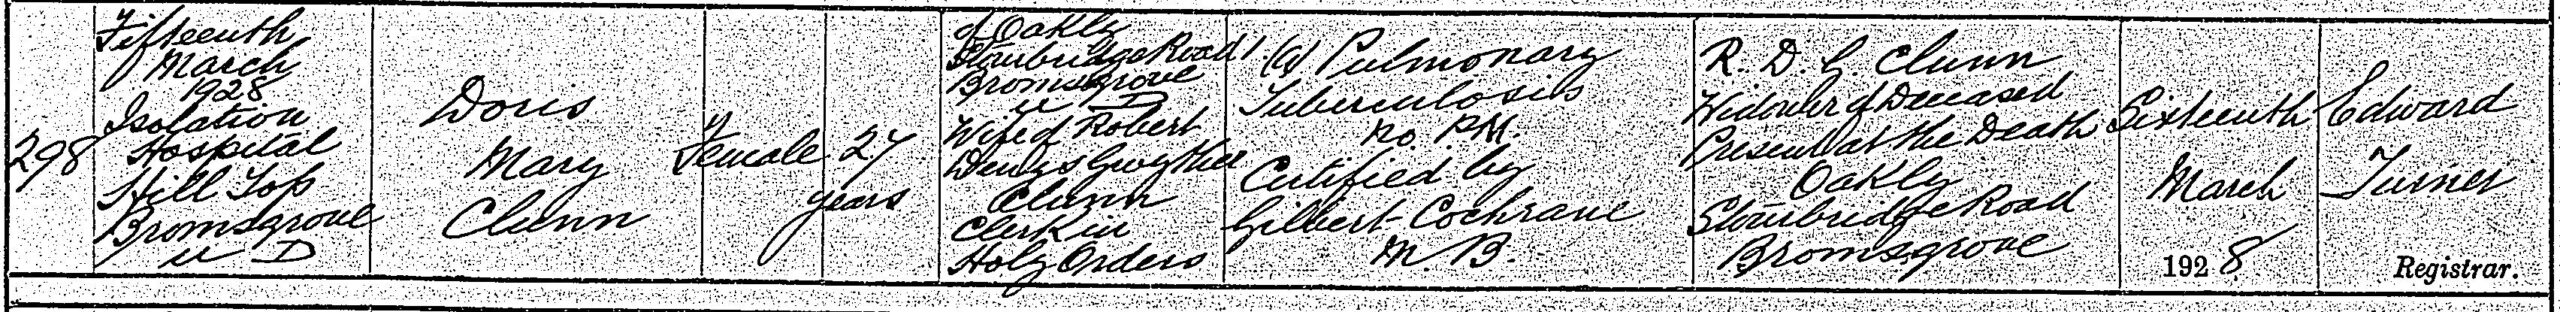 298
Fifteenth
March
1928
Isolation
Hospital
Hill Top
Bromsgrove
U D
Doris
Mary
Clunn
Female
27
years
of Oakly
Stourbridge Road
Bromsgrove
U D
Wife of Robert
Denzs Gwyther
Clunn
Clerk in
Holy Orders
1. (a) Pulmonary
Tuberculosis
No P.M.
Certified by
Gilbert Cochrane
M. B.
R. D. G. Clunn
Widower of Deceased
Present at the Death
Oakly
Stourbridge Road
Bromsgrove
Sixteenth
March
1928
Edward
Turner
Registrar.